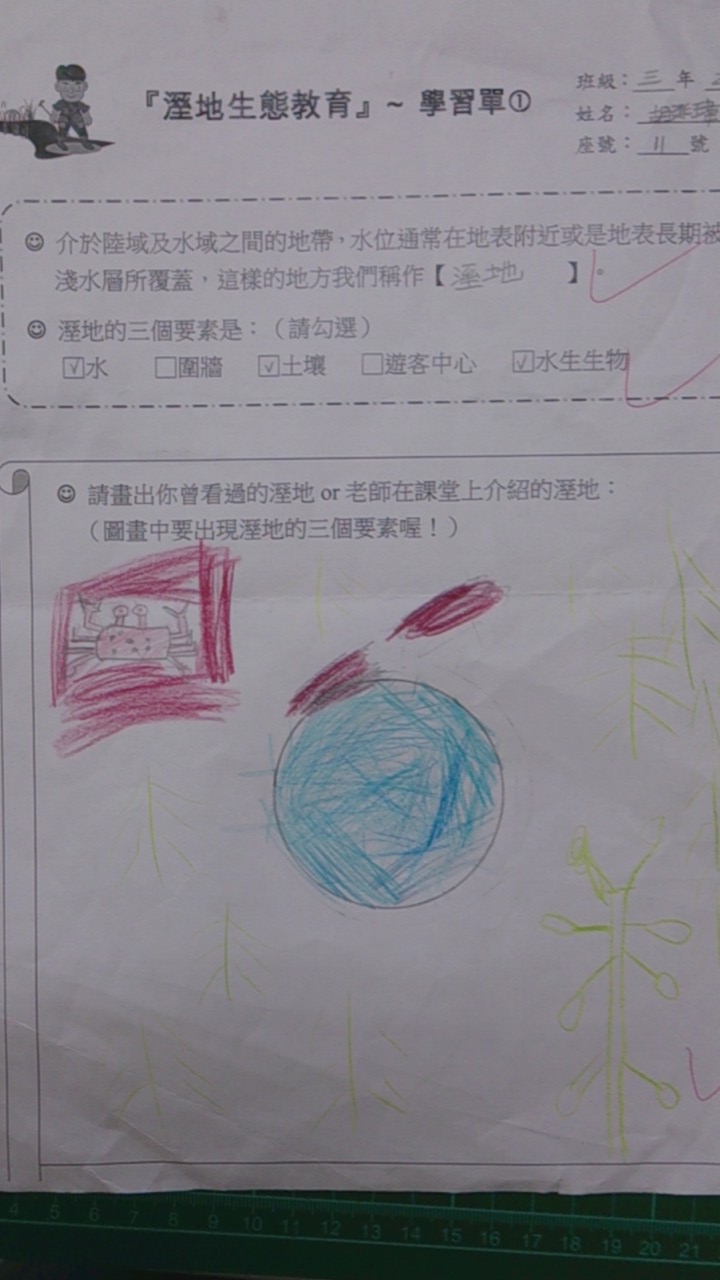 『溼地生態教育』~ 學習單①
班級：三年
姓名：
座號：11號
介於陸域及水域之間的地帶，水位通常在地表附近或是地表長期被
淺水層所覆蓋，這樣的地方我們稱作【溼地】。
溼地的三個要素是：（請勾選）
☑水 □圍牆 ☑土壤 □遊客中心 ☑水生生物
請畫出你曾看過的溼地 or 老師在課堂上介紹的溼地：
（圖畫中要出現溼地的三個要素喔！）
4 5 6 7 8 9 10 11 12 13 14 15 16 17 18 19 20 21